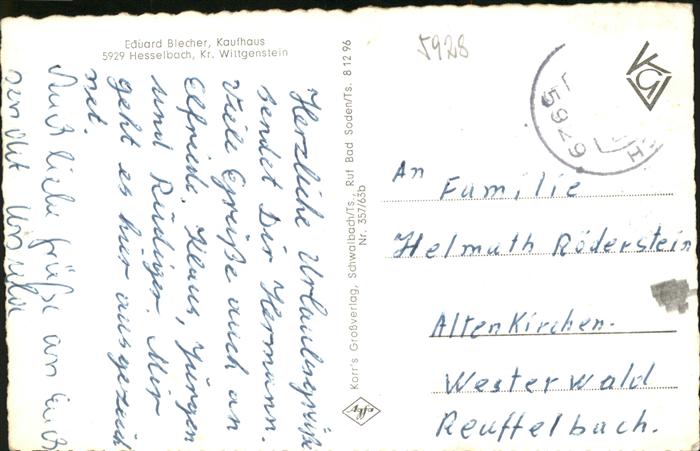 Eduard Blecher, Kaufhaus
5929 Hesselbach, Kr. Wittgenstein
5928
5929
Herzliche Urlaubsgrüße
sendet Dir Hermann.
Viele Grüße auch an
Elfriede, Klaus, Jürgen
und Rüdiger. Mir
geht es hier ausgezeich
net.
Auch liebe Grüße an Euch
sendet Ursula
Korr's Großverlag, Schwalbach/Ts., Ruf Bad Soden/Ts. 8 12 96
Nr. 357/63b
Agfa
An Familie
Helmuth Röderstein
Altenkirchen.
Westerwald
Reuffelbach.